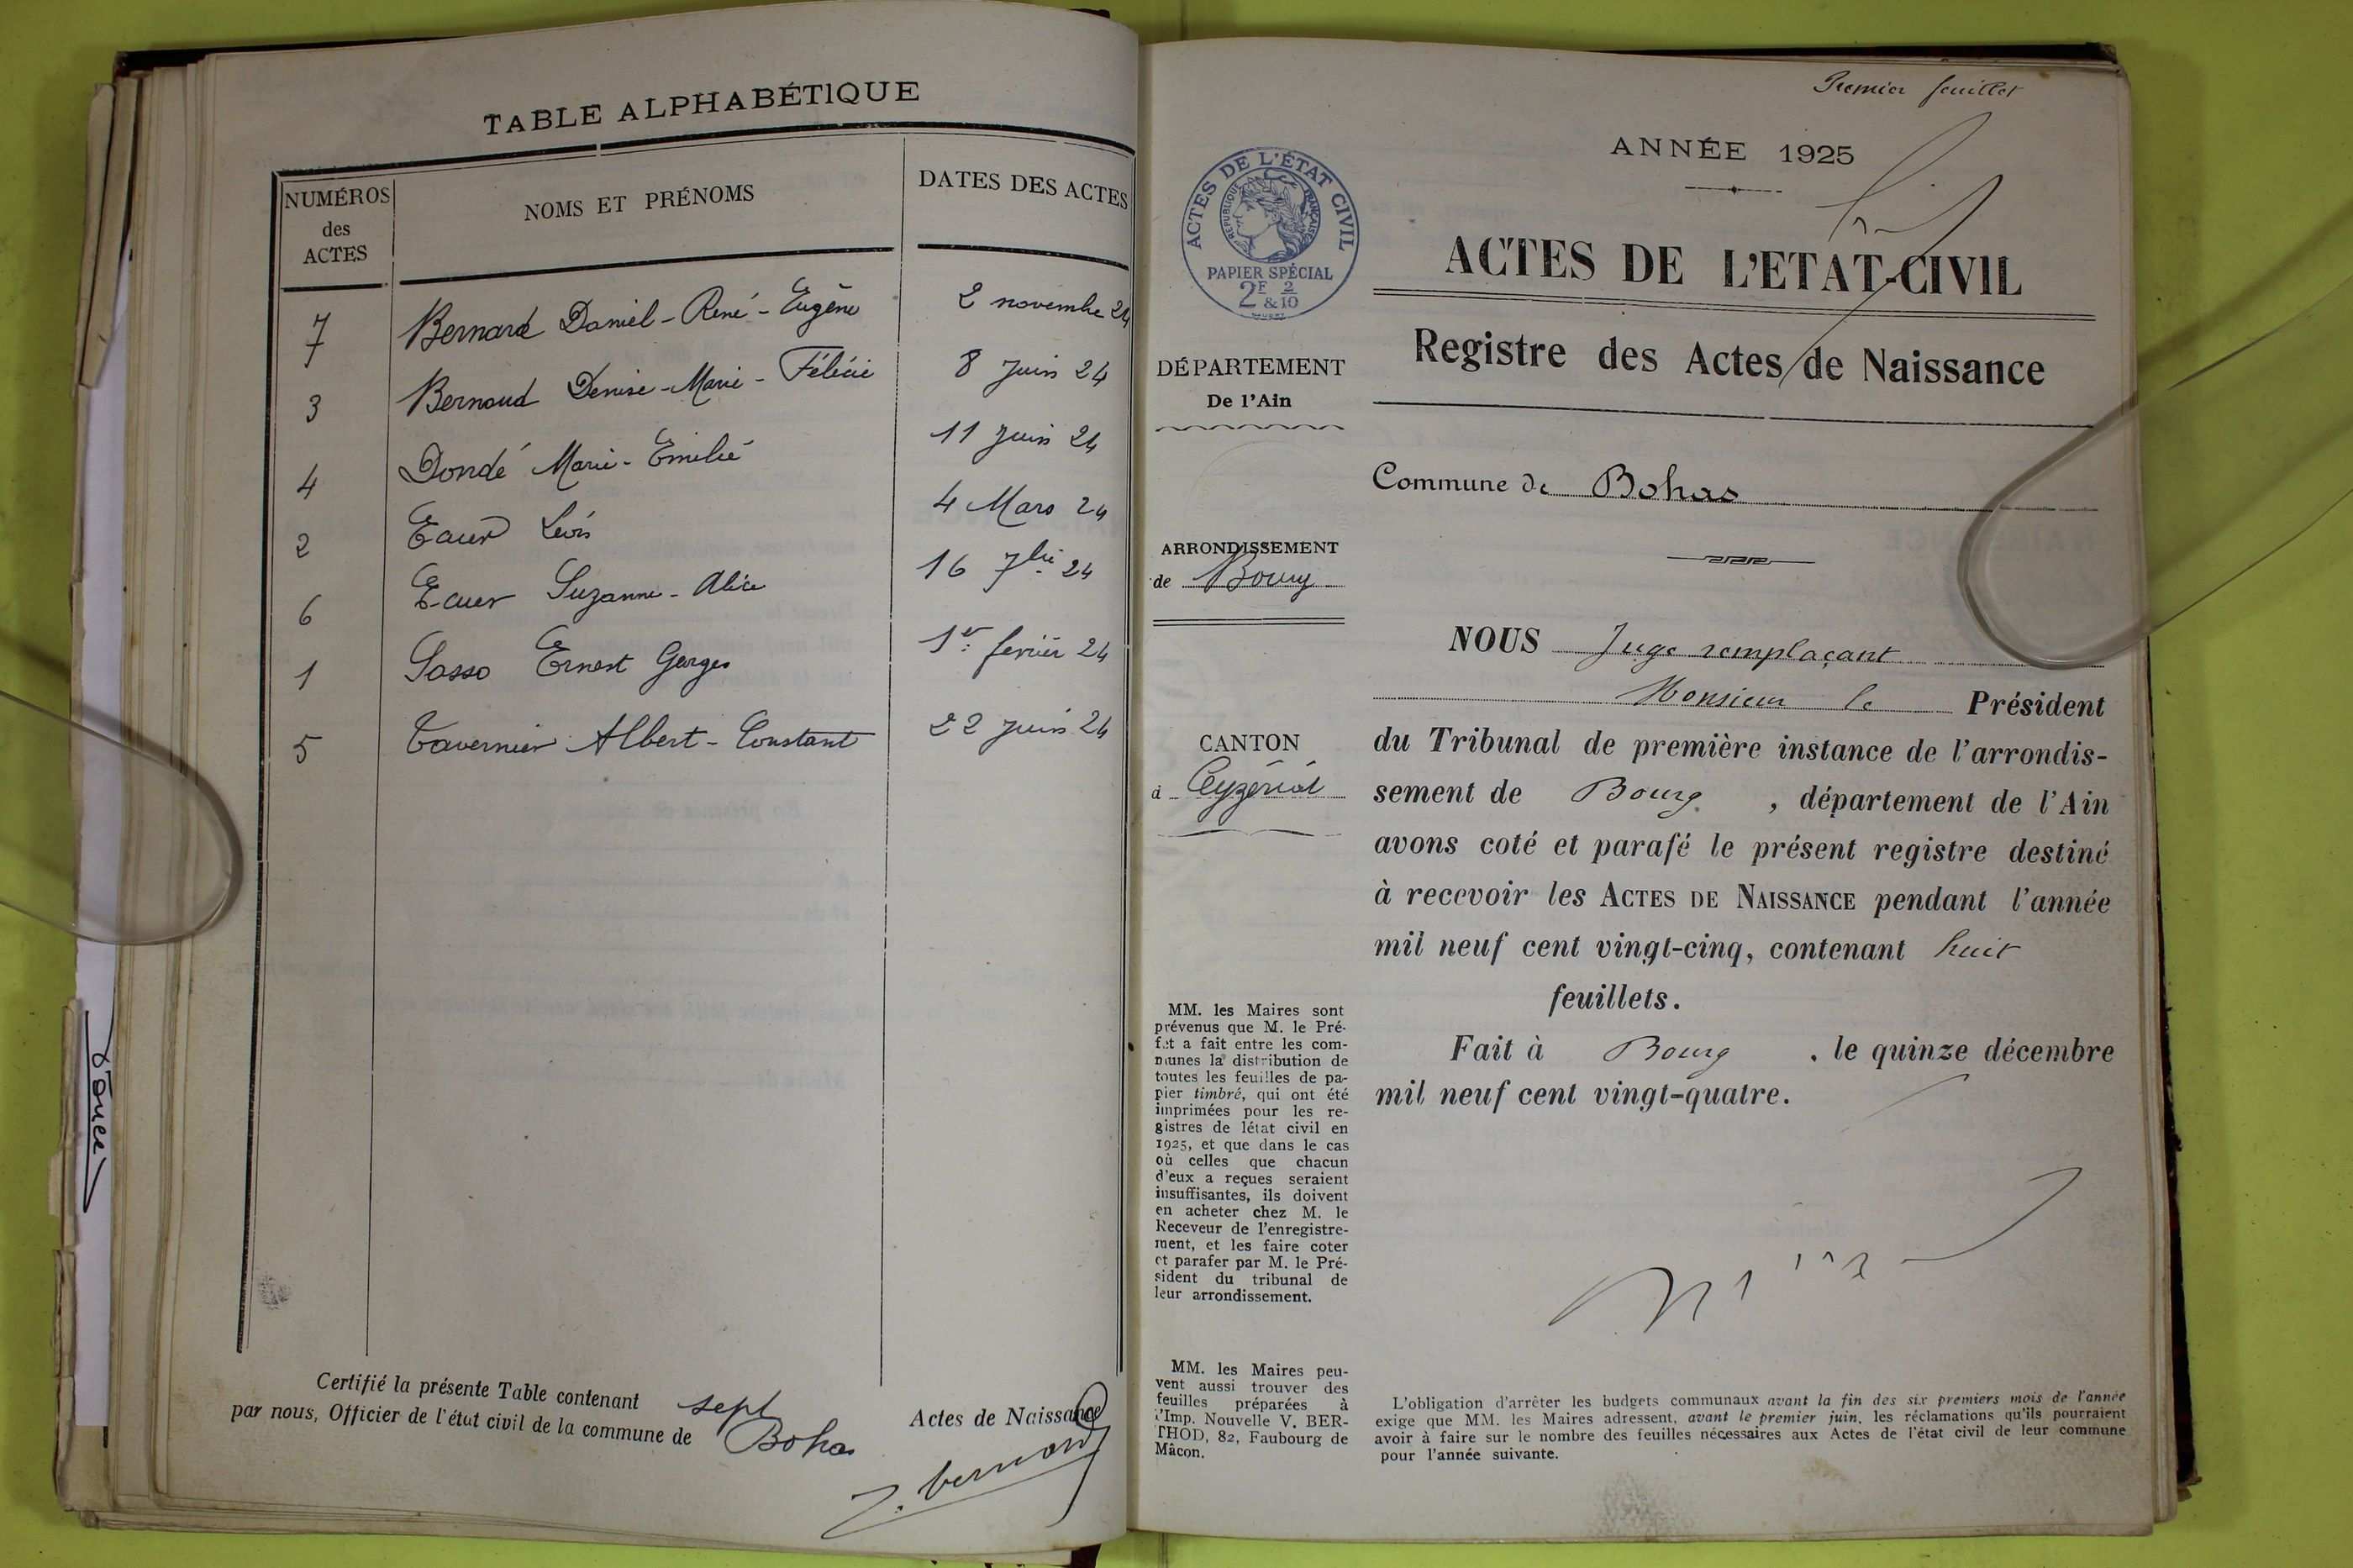 TABLE ALPHABÉTIQUE
NUMÉROS des ACTES
NOMS ET PRÉNOMS
DATES DES ACTES
7 Bernard Daniel-René-Eugène 2 novembre 24
3 Bernoud Denise-Marie-Félicie 8 Juin 24
4 Dondé Marie-Emilie 11 Juin 24
2 4 Mars 24
6 Suzanne-Alice 16 7bre 24
1 Sasso Ernest Georges 1er février 24
5 Tavernier Albert-Constant 22 juin 24
Certifié la présente Table contenant sept Actes de Naissance
par nous, Officier de l'état civil de la commune de Bohas
J. Bernard
Premier feuillet
ANNÉE 1925
ACTES DE L'ÉTAT CIVIL
RÉPUBLIQUE FRANÇAISE
PAPIER SPÉCIAL
2F 2
&10
ACTES DE L'ETAT-CIVIL
Registre des Actes de Naissance
DÉPARTEMENT
De l'Ain
Commune de Bohas
ARRONDISSEMENT
de Bourg
CANTON
à Ceyzériat
NOUS Juge remplaçant
Monsieur le Président
du Tribunal de première instance de l'arrondis-
sement de Bourg, département de l'Ain
avons coté et parafé le présent registre destiné
à recevoir les ACTES DE NAISSANCE pendant l'année
mil neuf cent vingt-cinq, contenant huit
feuillets.
Fait à Bourg. le quinze décembre
mil neuf cent vingt-quatre.
MM. les Maires sont
prévenus que M. le Pré-
fet a fait entre les com-
munes la distribution de
toutes les feuilles de pa-
pier timbré, qui ont été
imprimées pour les re-
gistres de létat civil en
1925, et que dans le cas
où celles que chacun
d'eux a reçues seraient
insuffisantes, ils doivent
en acheter chez M. le
Receveur de l'enregistre-
ment, et les faire coter
et parafer par M. le Pré-
sident du tribunal de
leur arrondissement.
MM. les Maires peu-
vent aussi trouver des
feuilles préparées à
l'Imp. Nouvelle V. BER-
THOD, 82, Faubourg de
Mâcon.
L'obligation d'arrêter les budgets communaux avant la fin des six premiers mois de l'année
exige que MM. les Maires adressent, avant le premier juin, les réclamations qu'ils pourraient
avoir à faire sur le nombre des feuilles nécessaires aux Actes de l'état civil de leur commune
pour l'année suivante.